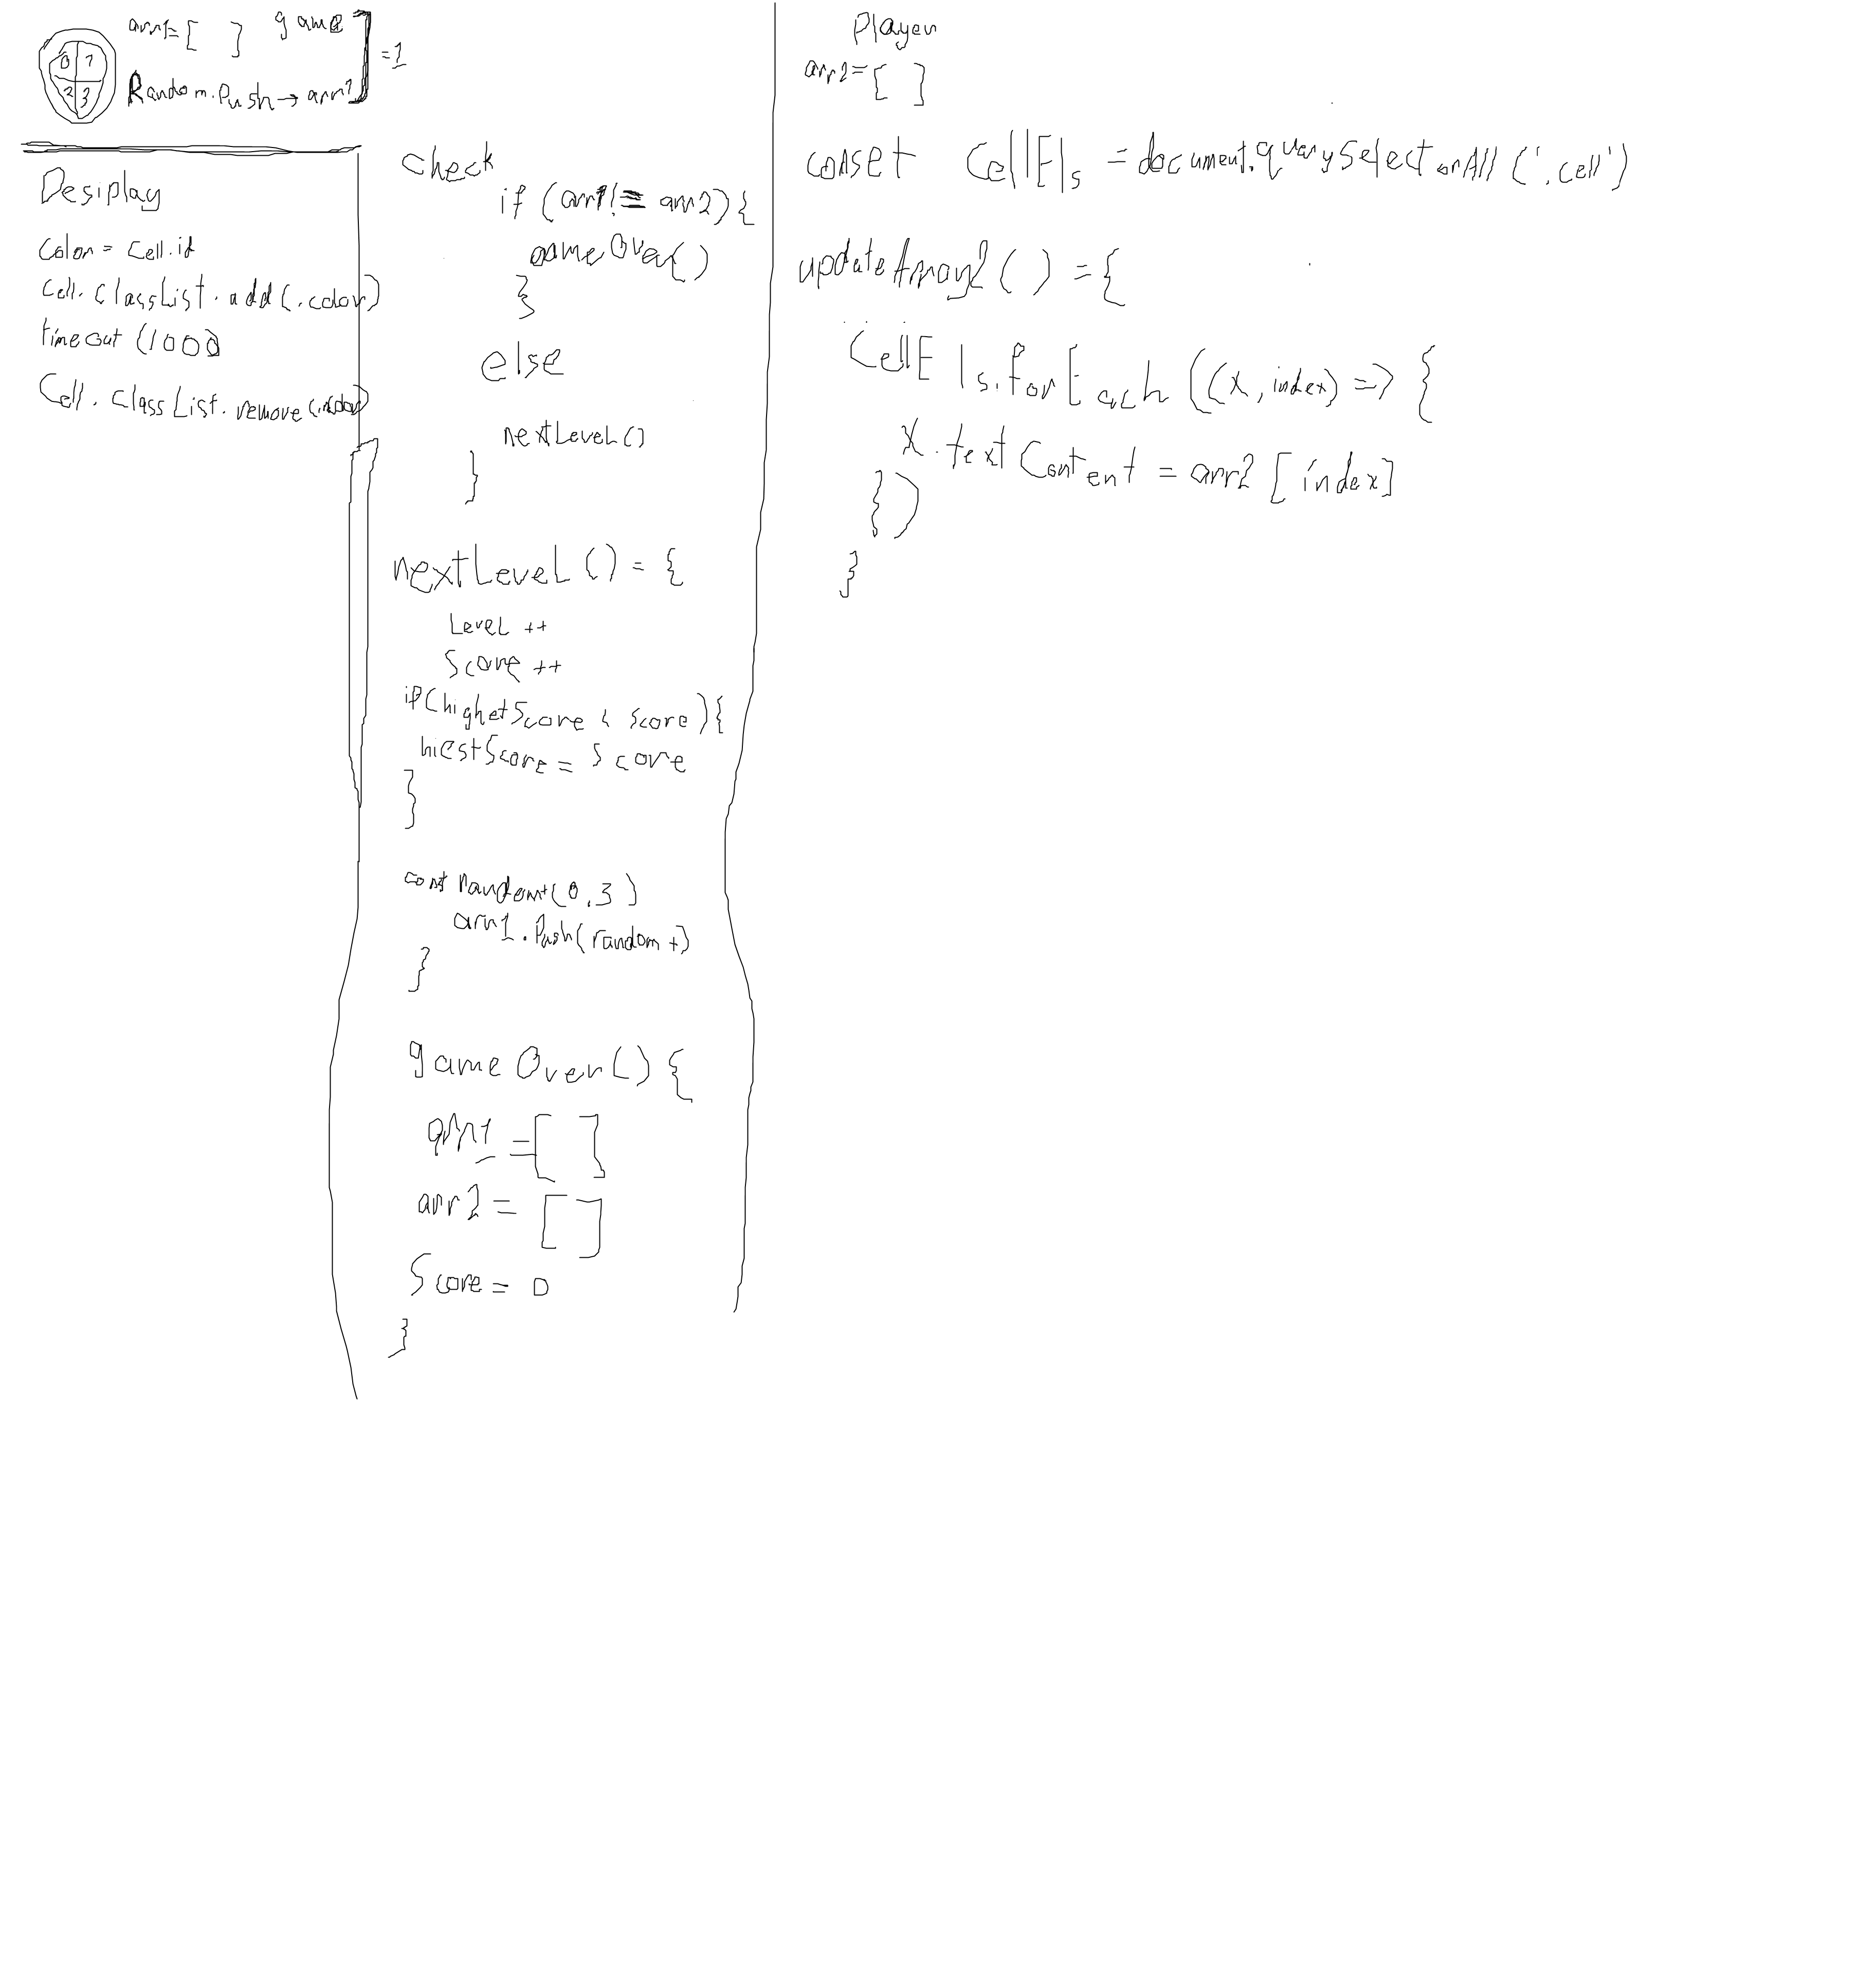 arr1= [ ] game
0 1
2 3
Random.Push → arr1
= 1
Desiplay
Color = Cell.id
Cell.classList.add(.color)
timeout (1000
Cell.classList.remove(.color)
check
if (arr1 !== arr2) {
gameOver()
}
else
nextLeveL()
}
nextLeveL () = {
LeveL ++
Score ++
if(highetScore < Score) {
hiestScore = Score
}
const random+(0,3)
arr1.Push(random+)
}
gameOver() {
arr1 = [ ]
arr2 = [ ]
Score = 0
}
Player
arr2 = [ ]
conset CellEls = document.quarySelectorAll('.cell')
updateArray2 () = {
CellEls.forEach((x, index) => {
x.textContent = arr2 [index]
})
}